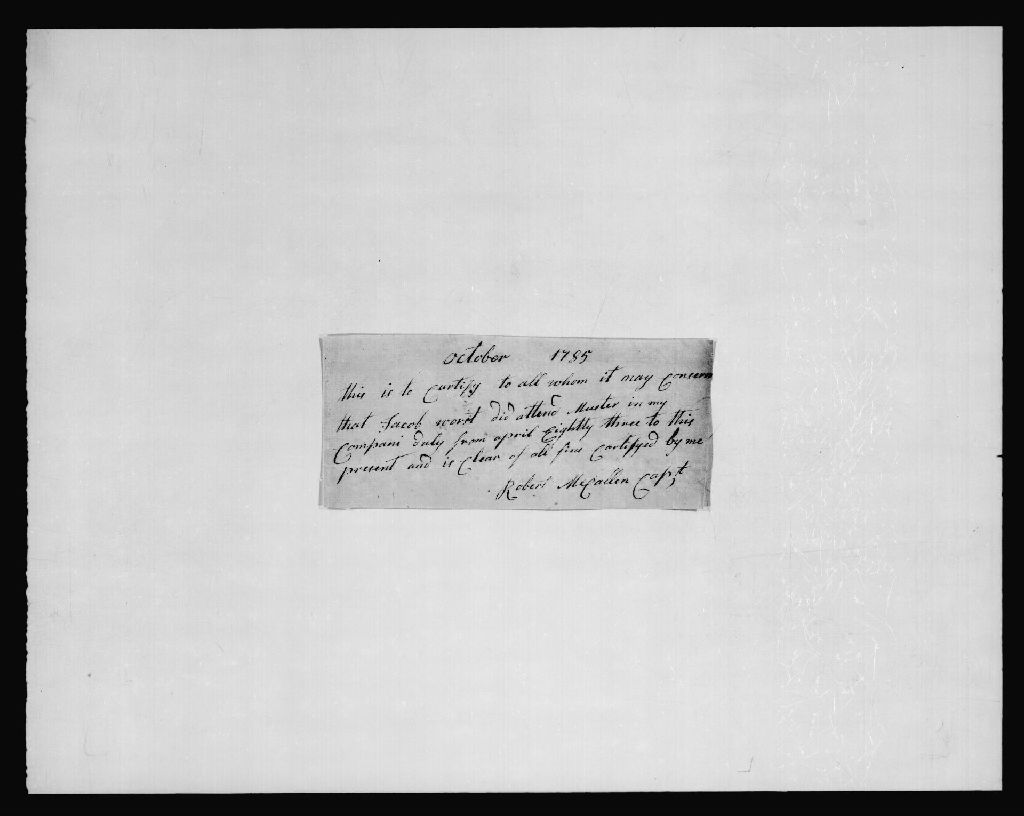 october 1785
this is to Curtify to all whom it may Concern
that Jacob worst did attend Muster in my
Compani duly from april Eightly three to this
present and is Clear of all fins Cartifyed by me
Robert McCallen Capt